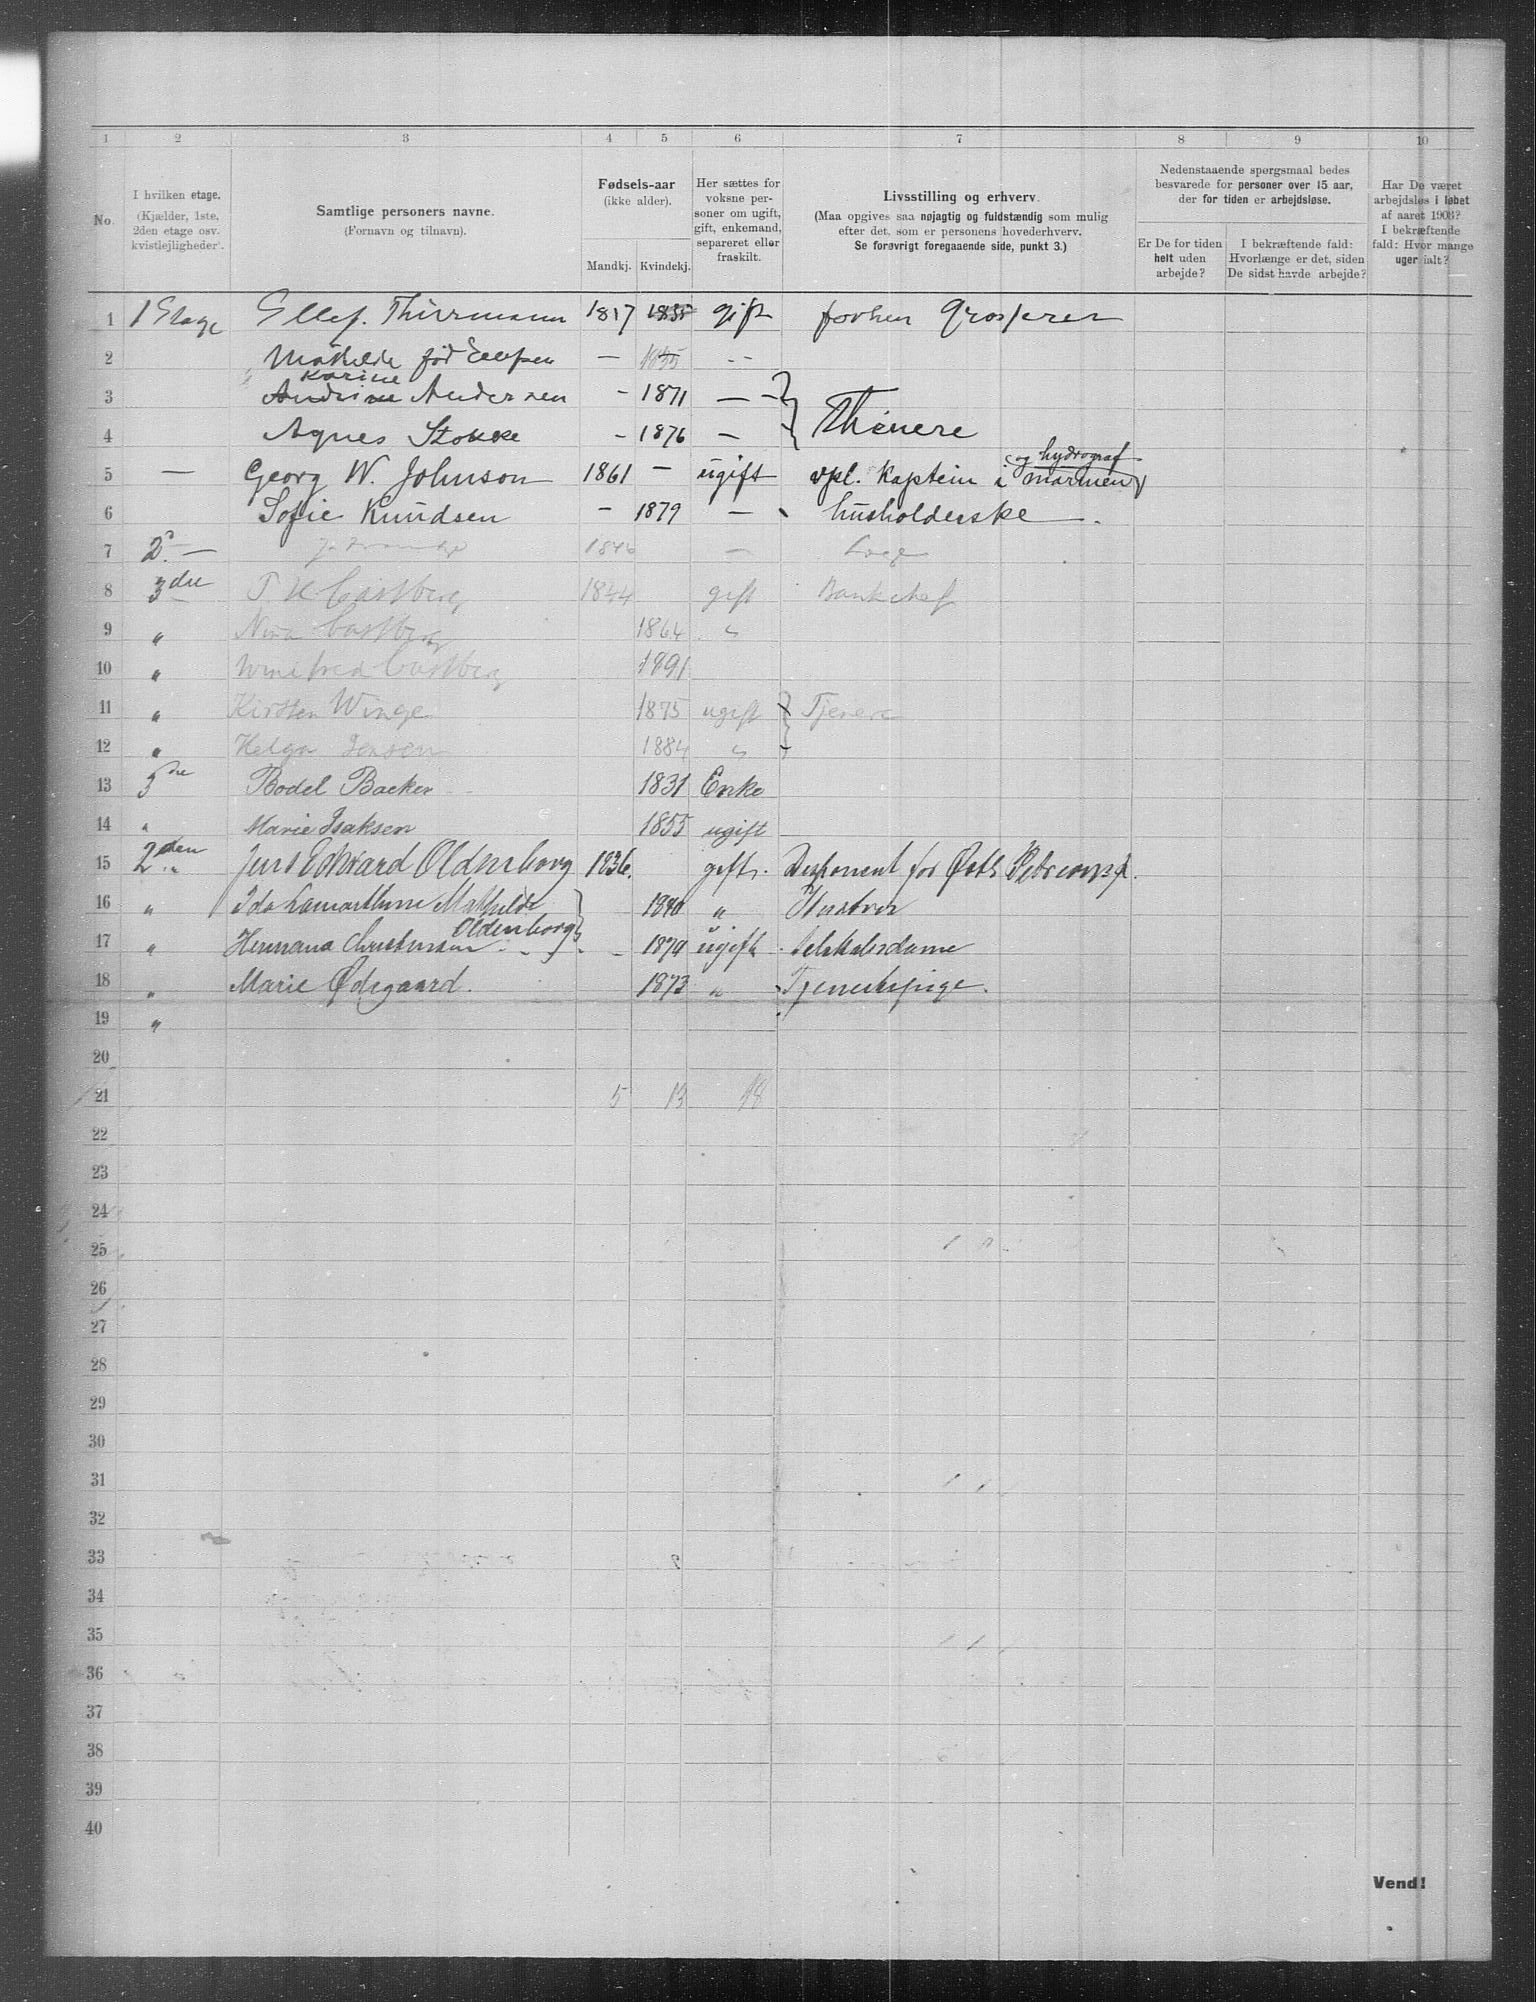 1 2 3 4 5 6 7 8 9 10
No.
I hvilken etage.
(Kjælder, 1ste,
2den etage osv.
kvistlejligheder).
Samtlige personers navne.
(Fornavn og tilnavn).
Fødsels-aar
(ikke alder).
Mandkj. Kvindekj.
Her sættes for
voksne per-
soner om ugift,
gift, enkemand,
separeret eller
fraskilt.
Livsstilling og erhverv.
(Maa opgives saa nøjagtig og fuldstændig som mulig
efter det, som er personens hovederhverv.
Se forøvrigt foregaaende side, punkt 3.)
Nedenstaaende spørgsmaal bedes
besvarede for personer over 15 aar,
der for tiden er arbejdsløse.
Er De for tiden
helt uden
arbejde?
I bekræftende fald:
Hvorlænge er det, siden
De sidst havde arbejde?
Har De været
arbejdsløs i løbet
af aaret 1903?
I bekræftende
fald: Hvor mange
uger ialt?
1 1 Etage Ellef. Thurmann 1837 1835 gift forhen Grosserer
2 Mathilde født Ellefsen — 1835 --
Karine
3 Andrine Andersen - 1871 —
4 Agnes Stokke - 1876 — Thjenere
og hydrograf
5 — Georg W. Johnson 1861 — ugift vpl. Kaptein i marinen
6 Sofie Knudsen — 1879 — husholderske
7 2 — 1846 — Læge
8 3die T. H. Castberg 1844 gift Bankchef
9 " Nina Castberg 1864 "
10 " Winifred Castberg 1891
11 " Kirsten Winge 1875 ugift Tjenere
12 " Helga Jensen 1884 "
13 3die Bodel Backer 1831 Enke
14 " Marie Isaksen 1855 ugift
15 2den Jens Edward Oldenborg 1836. gift. Disponent for
16 " Ida Mathilde 1840 " Hustru
Oldenborg
17 " Hermana Christensen 1874 ugift. Selskabsdame
18 " Marie Ødegaard. 1873 " Tjenestepige.
19 "
20
21 5 13 18
22
23
24
25
26
27
28
29
30
31
32
33
34
35
36
37
38
39
40
Vend!